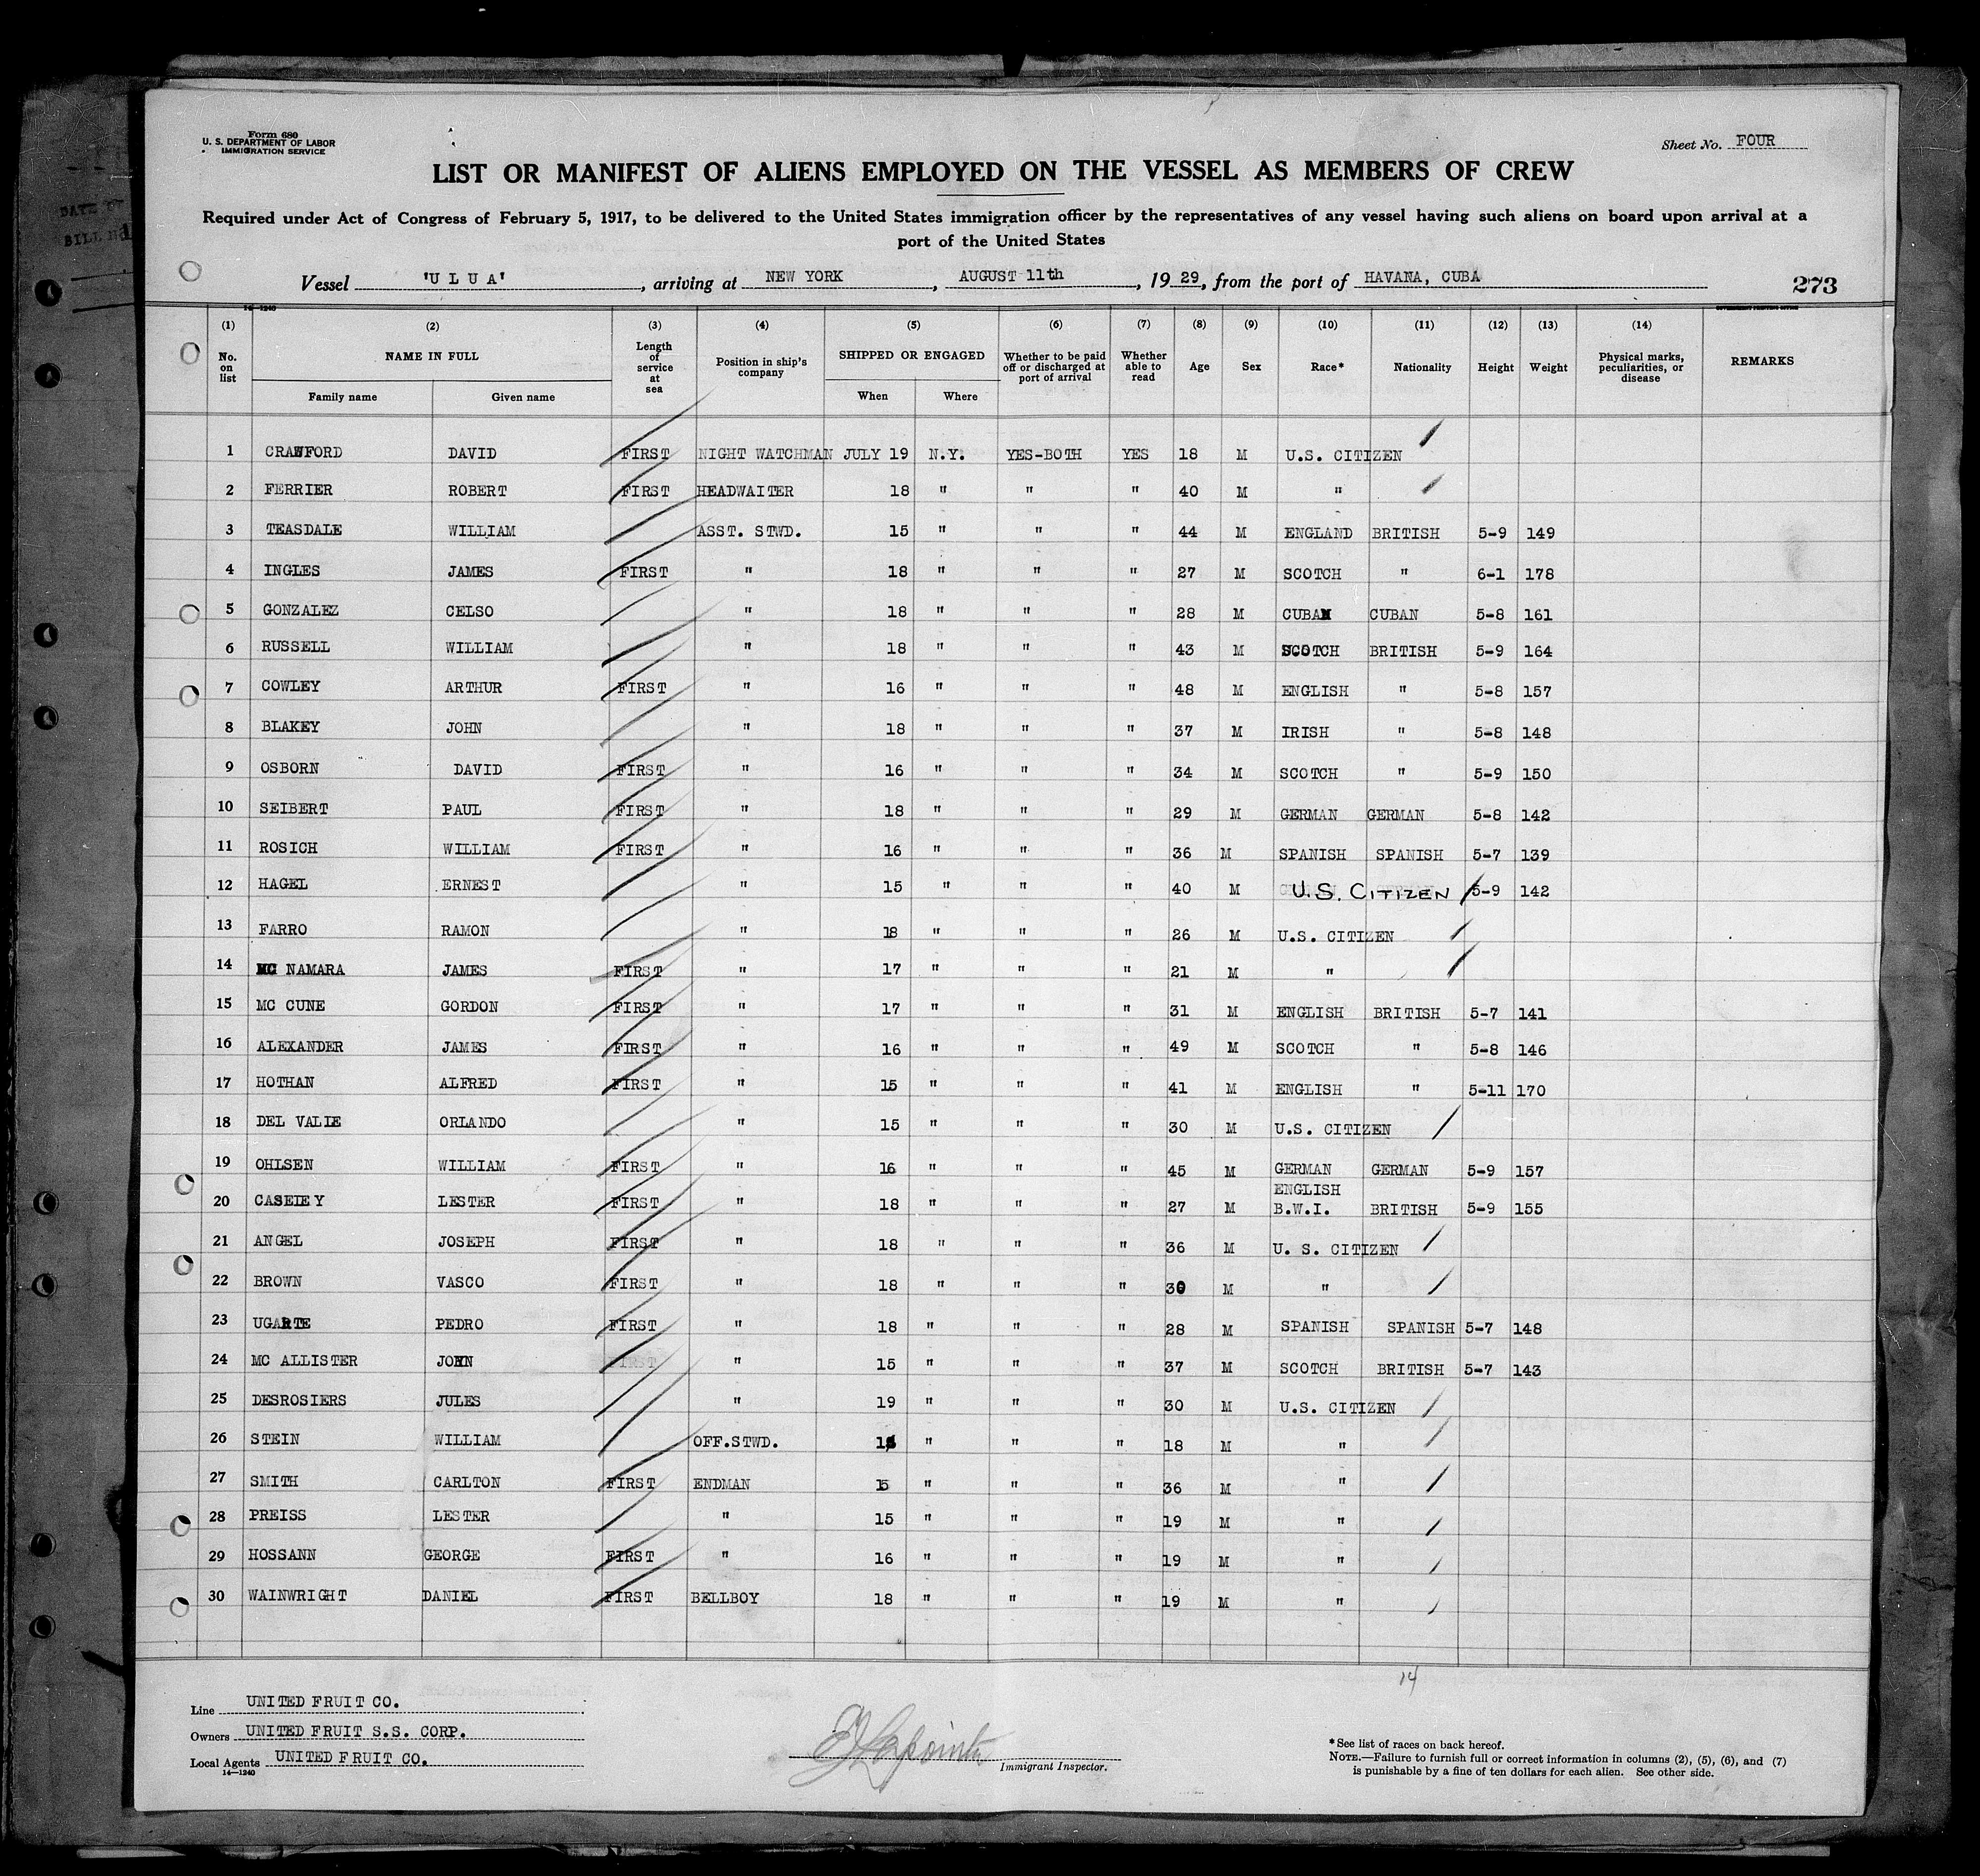 Form 680
U. S. DEPARTMENT OF LABOR
IMMIGRATION SERVICE
Sheet No. FOUR
LIST OR MANIFEST OF ALIENS EMPLOYED ON THE VESSEL AS MEMBERS OF CREW
Required under Act of Congress of February 5, 1917, to be delivered to the United States immigration officer by the representatives of any vessel having such aliens on board upon arrival at a
port of the United States
Vessel 'U L U A', arriving at NEW YORK, AUGUST 11th, 1929, from the port of HAVANA, CUBA
273
14-1240
(1) (2) (3) (4) (5) (6) (7) (8) (9) (10) (11) (12) (13) (14)
No. on list NAME IN FULL Family name Given name Length of service at sea Position in ship's company SHIPPED OR ENGAGED When Where Whether to be paid off or discharged at port of arrival Whether able to read Age Sex Race* Nationality Height Weight Physical marks, peculiarities, or disease REMARKS
1 CRAWFORD DAVID FIRST NIGHT WATCHMAN JULY 19 N.Y. YES-BOTH YES 18 M U.S. CITIZEN
2 FERRIER ROBERT FIRST HEADWAITER 18 " " " 40 M "
3 TEASDALE WILLIAM ASST. STWD. 15 " " " 44 M ENGLAND BRITISH 5-9 149
4 INGLES JAMES FIRST " 18 " " " 27 M SCOTCH " 6-1 178
5 GONZALEZ CELSO " 18 " " " 28 M CUBAN CUBAN 5-8 161
6 RUSSELL WILLIAM " 18 " " " 43 M SCOTCH BRITISH 5-9 164
7 COWLEY ARTHUR FIRST " 16 " " " 48 M ENGLISH " 5-8 157
8 BLAKEY JOHN " 18 " " " 37 M IRISH " 5-8 148
9 OSBORN DAVID FIRST " 16 " " " 34 M SCOTCH " 5-9 150
10 SEIBERT PAUL FIRST " 18 " " " 29 M GERMAN GERMAN 5-8 142
11 ROSICH WILLIAM FIRST " 16 " " " 36 M SPANISH SPANISH 5-7 139
12 HAGEL ERNEST " 15 " " " 40 M U.S. CITIZEN 5-9 142
13 FARRO RAMON " 18 " " " 26 M U.S. CITIZEN
14 MC NAMARA JAMES FIRST " 17 " " " 21 M "
15 MC CUNE GORDON FIRST " 17 " " " 31 M ENGLISH BRITISH 5-7 141
16 ALEXANDER JAMES FIRST " 16 " " " 49 M SCOTCH " 5-8 146
17 HOTHAN ALFRED FIRST " 15 " " " 41 M ENGLISH " 5-11 170
18 DEL VALLE ORLANDO " 15 " " " 30 M U.S. CITIZEN
19 OHLSEN WILLIAM FIRST " 16 " " " 45 M GERMAN GERMAN 5-9 157
20 CASELEY LESTER FIRST " 18 " " " 27 M ENGLISH B.W.I. BRITISH 5-9 155
21 ANGEL JOSEPH FIRST " 18 " " " 36 M U. S. CITIZEN
22 BROWN VASCO FIRST " 18 " " " 30 M "
23 UGARTE PEDRO FIRST " 18 " " " 28 M SPANISH SPANISH 5-7 148
24 MC ALLISTER JOHN FIRST " 15 " " " 37 M SCOTCH BRITISH 5-7 143
25 DESROSIERS JULES " 19 " " " 30 M U.S. CITIZEN
26 STEIN WILLIAM OFF.STWD. " " " 18 M "
27 SMITH CARLTON FIRST ENDMAN 15 " " " 36 M "
28 PREISS LESTER " 15 " " " 19 M "
29 HOSSANN GEORGE FIRST " 16 " " " 19 M "
30 WAINWRIGHT DANIEL FIRST BELLBOY 18 " " " 19 M "
14
Line UNITED FRUIT CO.
Owners UNITED FRUIT S.S. CORP.
Local Agents UNITED FRUIT CO.
14-1240
Immigrant Inspector.
*See list of races on back hereof.
NOTE.—Failure to furnish full or correct information in columns (2), (5), (6), and (7)
is punishable by a fine of ten dollars for each alien. See other side.